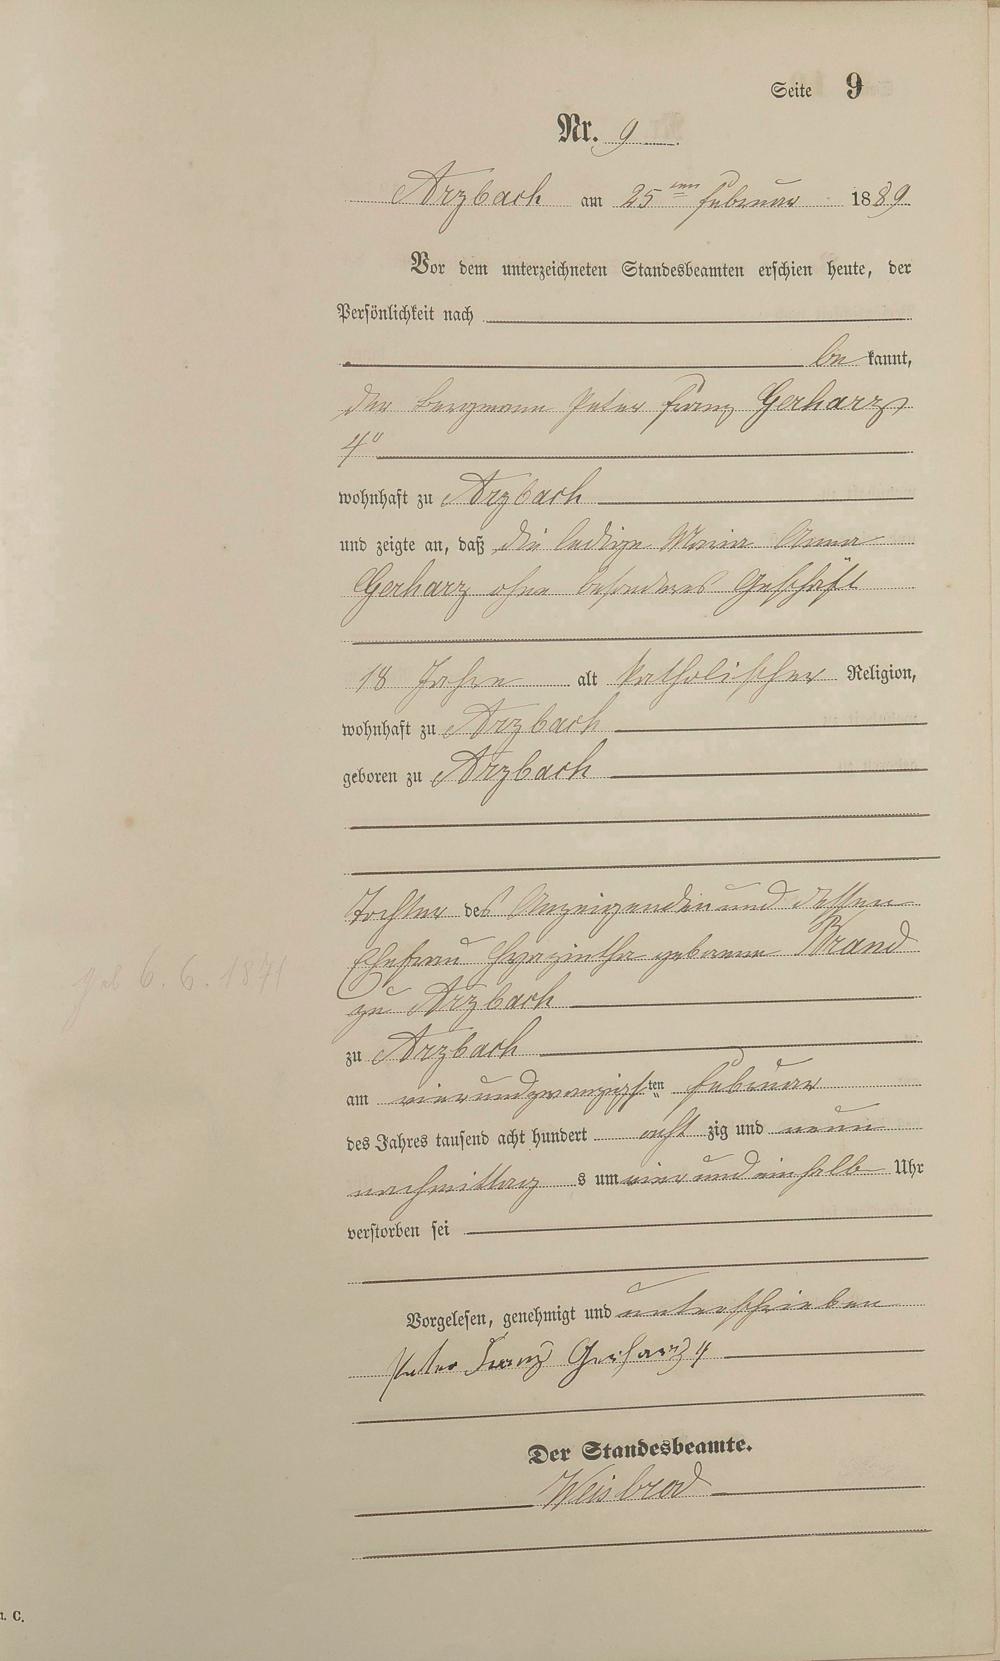 Seite 9
Nr. 9
Arzbach am 25ten Februar 1889
Vor dem unterzeichneten Standesbeamten erschien heute, der
Persönlichkeit nach
be kannt,
der Bergmann Peter Franz Gerharz
4r
wohnhaft zu Arzbach
und zeigte an, daß die ledige Maria Anna
Gerharz ohne besonderes Geschäft
18 Jahre alt katholischer Religion,
wohnhaft zu Arzbach
geboren zu Arzbach
Tochter des Anzeigenden und dessen
Ehefrau Hyazintha geborene Brand
geb 6. 6. 1871
zu Arzbach
zu Arzbach
am vierundzwanzigsten Februar
des Jahres tausend acht hundert acht zig und neun
nachmittag s um vier und ein halb Uhr
verstorben sei
Vorgelesen, genehmigt und unterschrieben
Peter Franz Gerharz 4
Der Standesbeamte.
Weisbrod
C.